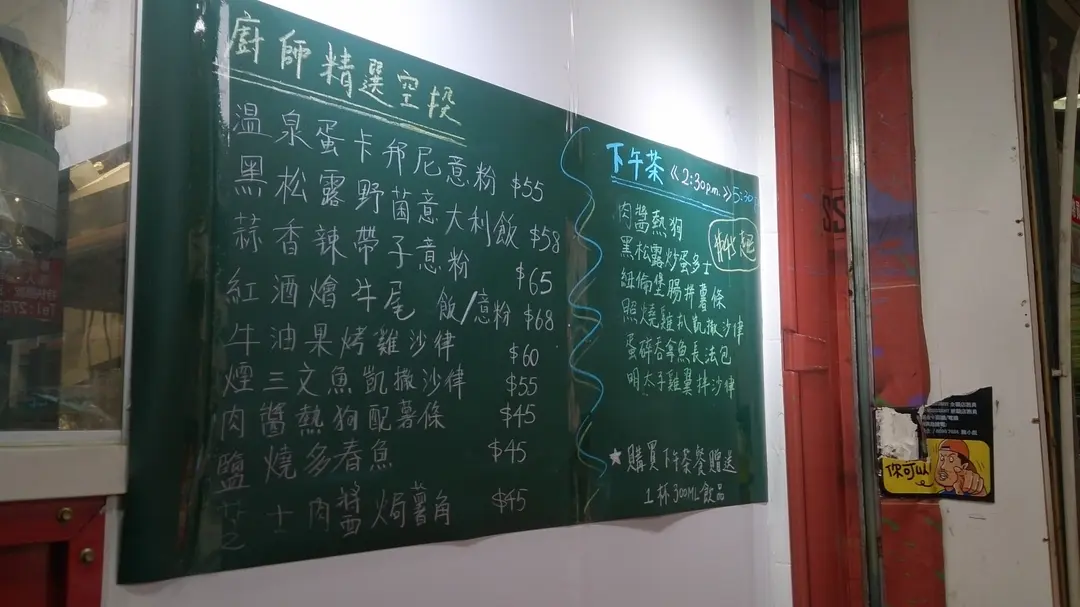 廚師精選空投
溫泉蛋卡邦尼意粉 $55
黑松露野菌意大利飯 $58
蒜香辣帶子意粉 $65
紅酒燴牛尾 飯/意粉 $68
牛油果烤雞沙律 $60
煙三文魚凱撒沙律 $55
肉醬熱狗配薯條 $45
鹽燒多春魚 $45
芝士肉醬焗薯角 $45
下午茶 《2:30pm.》5:30
肉醬熱狗
黑松露炒蛋多士
紐倫堡腸拼薯條
照燒雞扒凱撒沙律
蛋碎吞拿魚長法包
明太子雞翼拌沙律
★購買下午茶餐贈送
1杯300ML飲品
你可以